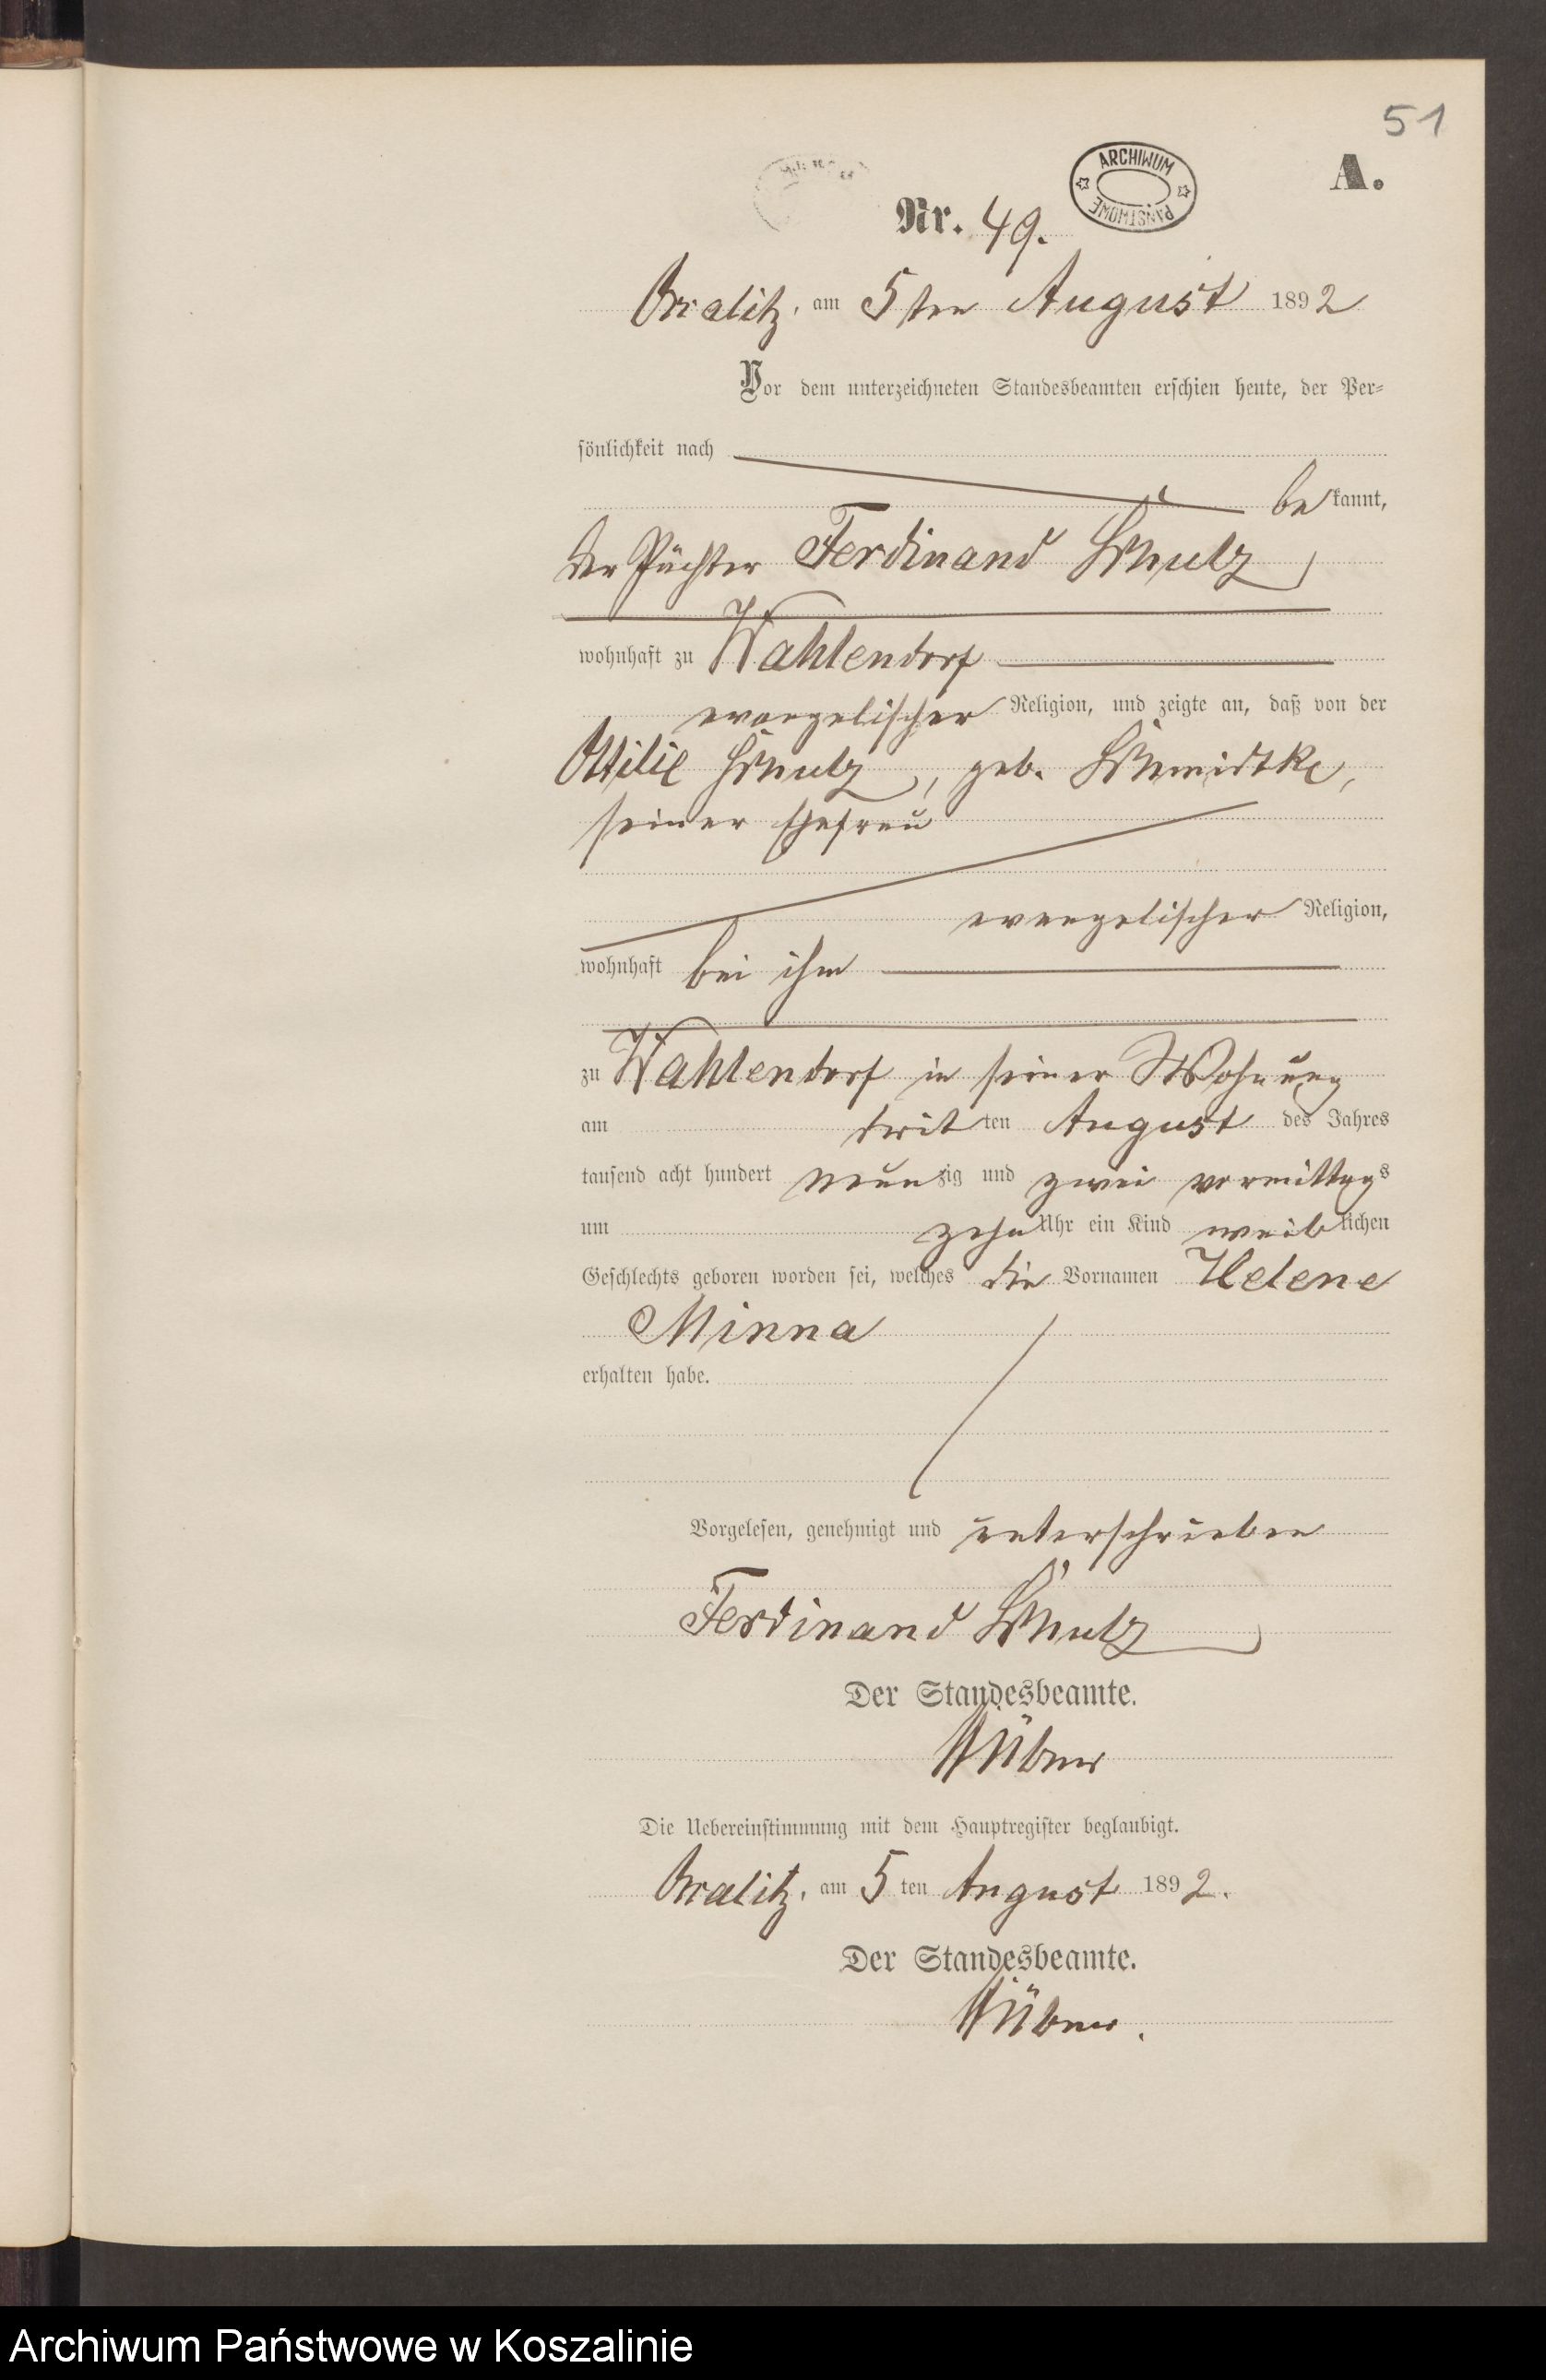 51
ARCHIWUM
PAŃSTWOWE
A.
Nr. 49.
am 5ten August 1892
Vor dem unterzeichneten Standesbeamten erschien heute, der Per-
sönlichkeit nach
bekannt,
der Pächter Ferdinand Schulz
wohnhaft zu Wahlendorf
evangelischer Religion, und zeigte an, daß von der
Ottilie Schulz, geb. Schmidtke,
seiner Ehefrau
evangelischer Religion,
wohnhaft bei ihm
zu Wahlendorf in seiner Wohnung
am dritten August des Jahres
tausend acht hundert neunzig und zwei vormittags
um zehn Uhr ein Kind weiblichen
Geschlechts geboren worden sei, welches die Vornamen Helene
Minna
erhalten habe.
Vorgelesen, genehmigt und unterschrieben
Ferdinand Schulz
Der Standesbeamte.
Die Uebereinstimmung mit dem Hauptregister beglaubigt.
am 5ten August 1892.
Der Standesbeamte.
Archiwum Państwowe w Koszalinie